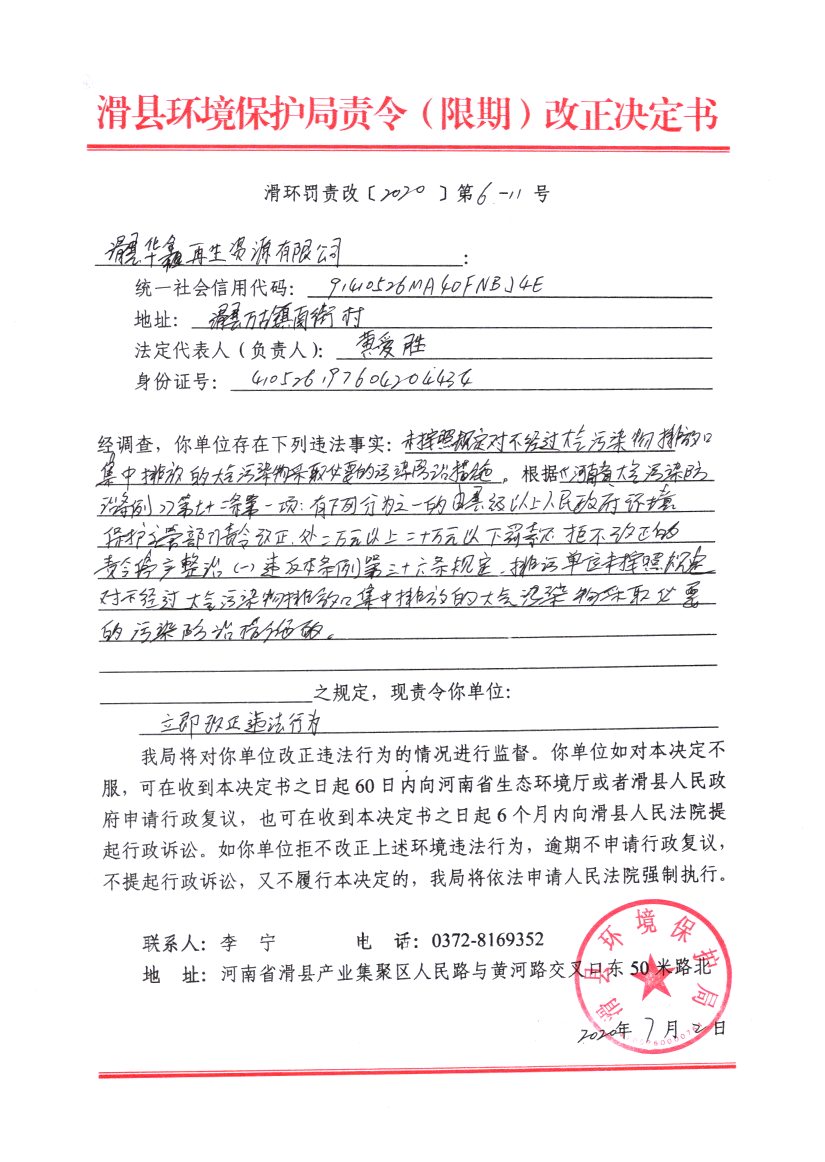 滑县环境保护局责令（限期）改正决定书
滑环罚责改〔2020〕第6-11号
滑县华鑫再生资源有限公司：
统一社会信用代码：91410526MA40FNBJ4E
地址：滑县万古镇南街村
法定代表人（负责人）：黄爱胜
身份证号：410526197604204434
经调查，你单位存在下列违法事实：未按照规定对不经过大气污染物排放口
集中排放的大气污染物采取必要的污染防治措施。根据《河南省大气污染防
治条例》第七十二条第一项：有下列行为之一的由县级以上人民政府环境
保护主管部门责令改正，处二万元以上二十万元以下罚款；拒不改正的
责令停产整治（一）违反本条例第三十六条规定，排污单位未按照规定
对不经过大气污染物排放口集中排放的大气污染物采取必要
的污染防治措施的。
之规定，现责令你单位：
立即改正违法行为
我局将对你单位改正违法行为的情况进行监督。你单位如对本决定不
服，可在收到本决定书之日起60日内向河南省生态环境厅或者滑县人民政
府申请行政复议，也可在收到本决定书之日起6个月内向滑县人民法院提
起行政诉讼。如你单位拒不改正上述环境违法行为，逾期不申请行政复议，
不提起行政诉讼，又不履行本决定的，我局将依法申请人民法院强制执行。
联系人：李 宁 电 话：0372-8169352
地 址：河南省滑县产业集聚区人民路与黄河路交叉口东50米路北
滑县环境保护局
2020年7月2日